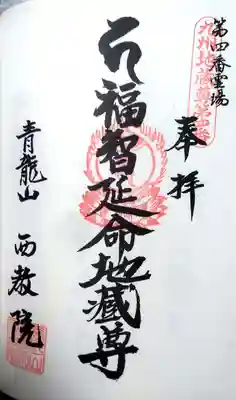 第四番霊場
九州地蔵尊第四番
奉拝
福智延命地蔵尊
青龍山 西教院